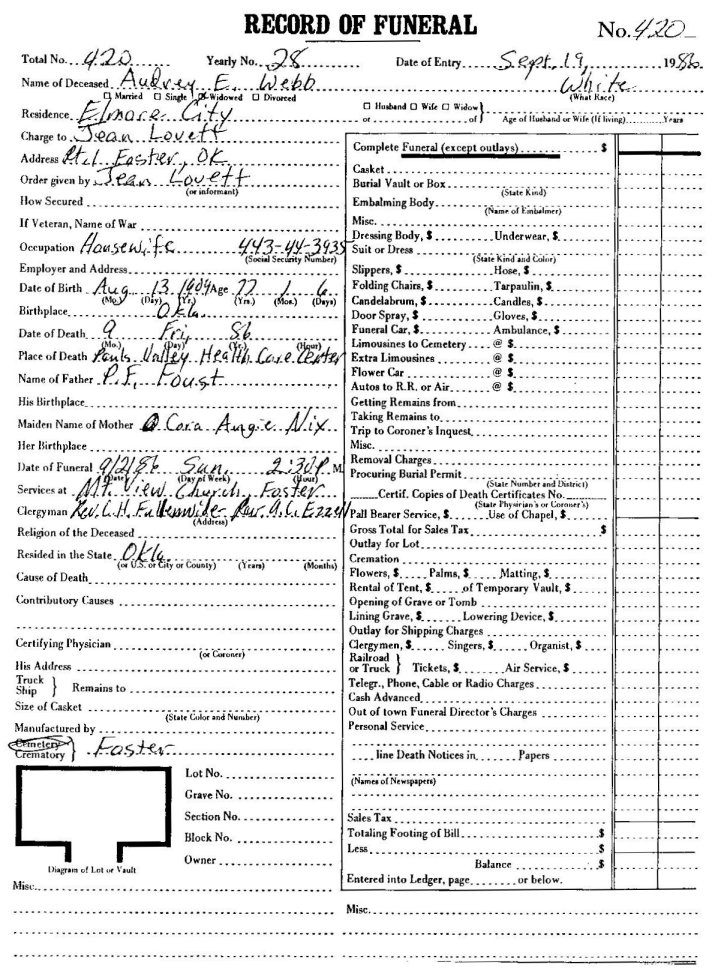 RECORD OF FUNERAL
No. 420
Total No. 420 Yearly No. 28 Date of Entry Sept. 19, 1986
Name of Deceased Audrey E. Webb White
☐ Married ☐ Single ☒ Widowed ☐ Divorced (What Race)
Residence Elmore City ☐ Husband ☐ Wife ☐ Widow } or of } Age of Husband or Wife (If living) Years
Charge to Jean Lovett
Address Rt. 1 Foster, OK
Order given by Jean Lovett
(or informant)
How Secured
If Veteran, Name of War
Occupation Housewife 443-44-3935
(Social Security Number)
Employer and Address
Date of Birth Aug 13, 1909 Age 77 1 6
(Mo.) (Day) (Yr.) (Yrs.) (Mos.) (Days)
Birthplace Okla.
Date of Death 9 Fri, 86
(Mo.) (Day) (Yr.) (Hour)
Place of Death Pauls Valley Health Care Center
Name of Father P. F. Foust
His Birthplace
Maiden Name of Mother Cora Angie Nix
Her Birthplace
Date of Funeral 9/21/86 Sun. 2:30 P.M
(Date) (Day of Week) (Hour)
Services at Mt. View Church, Foster
Clergyman Rev. C. H. Fullenwider Rev. A. C. Ezzell
(Address)
Religion of the Deceased
Resided in the State Okla.
(or U.S. or City or County) (Years) (Months)
Cause of Death
Contributory Causes
Certifying Physician
(or Coroner)
His Address
Truck
Ship } Remains to
Size of Casket
(State Color and Number)
Manufactured by
Cemetery
Crematory } Foster
Lot No.
Grave No.
Section No.
Block No.
Owner
Diagram of Lot or Vault
Misc.
Complete Funeral (except outlays) $
Casket
Burial Vault or Box
(State Kind)
Embalming Body
(Name of Embalmer)
Misc.
Dressing Body, $ Underwear, $
Suit or Dress
(State Kind and Color)
Slippers, $ Hose, $
Folding Chairs, $ Tarpaulin, $
Candelabrum, $ Candles, $
Door Spray, $ Gloves, $
Funeral Car, $ Ambulance, $
Limousines to Cemetery @ $
Extra Limousines @ $
Flower Car @ $
Autos to R.R. or Air @ $
Getting Remains from
Taking Remains to
Trip to Coroner's Inquest
Misc.
Removal Charges
Procuring Burial Permit
(State Number and District)
Certif. Copies of Death Certificates No.
(State Physician's or Coroner's)
Pall Bearer Service, $ Use of Chapel, $
Gross Total for Sales Tax $
Outlay for Lot
Cremation
Flowers, $ Palms, $ Matting, $
Rental of Tent, $ of Temporary Vault, $
Opening of Grave or Tomb
Lining Grave, $ Lowering Device, $
Outlay for Shipping Charges
Clergymen, $ Singers, $ Organist, $
Railroad
or Truck } Tickets, $ Air Service, $
Telegr., Phone, Cable or Radio Charges
Cash Advanced
Out of town Funeral Director's Charges
Personal Service
line Death Notices in Papers
(Names of Newspapers)
Sales Tax
Totaling Footing of Bill $
Less $
Balance $
Entered into Ledger, page or below.
Misc.